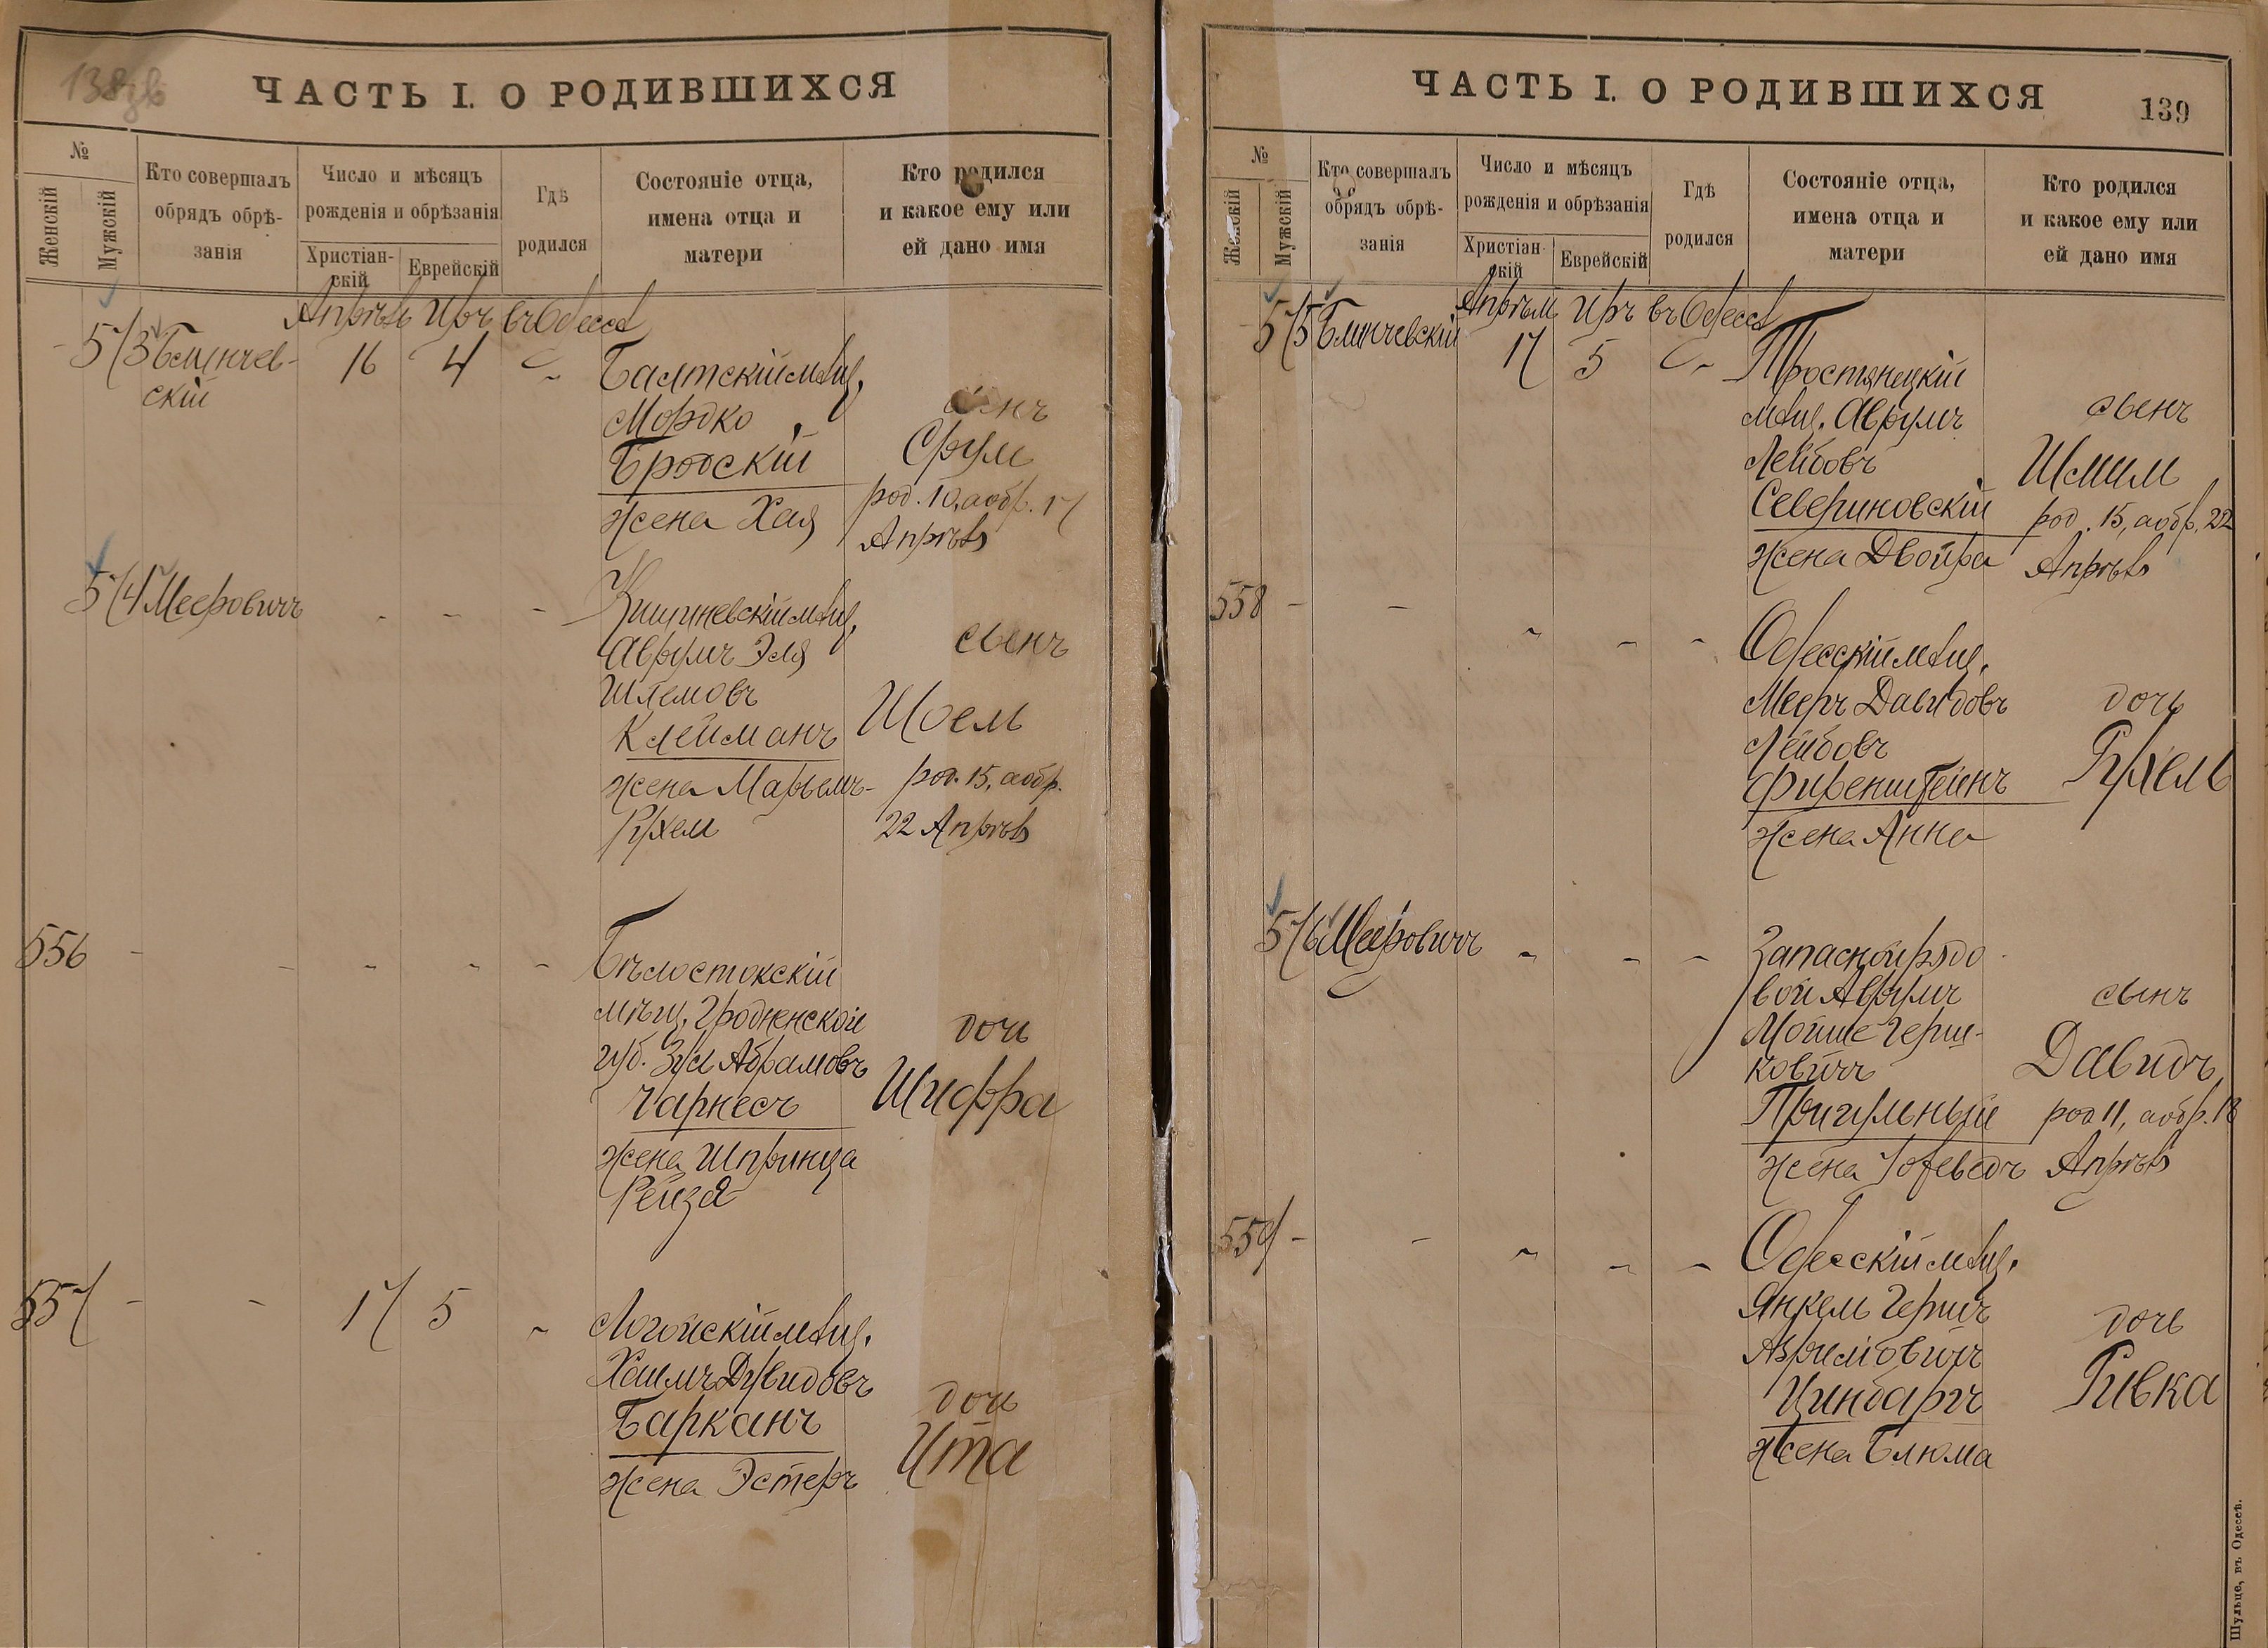 138зв
ЧАСТЬ I. О РОДИВШИХСЯ
№
Женскій
Мужскій
Кто совершалъ
обрядъ обрѣ-
занія
Число и мѣсяцъ
рожденія и обрѣзанія
Христіан-
скій
Еврейскій
Гдѣ
родился
Состояніе отца,
имена отца и
матери
Кто родился
и какое ему или
ей дано имя
Апрѣль Иръ въ Одессѣ
573 Блинчев-
скій
16 4 Балтскій мѣщ.
Мордко
Бродскій
жена Хая
сынъ
Срул
род. 10, а обр. 17
Апрѣля
574 Мееровичъ - - - Кишиневскій мѣщ.
Аврумъ Эля
Шлемовъ
Клейманъ
жена Марьемъ-
Рухел
сынъ
Иоель
род. 15, а обр.
22 Апрѣля
556 - - - - - Бѣлостокскій
мѣщ. Гродненской
губ. Зусь Абрамовъ
Чарнесъ
жена Шпринца
Рейзя
дочь
Шифра
557 - - 17 5 - Логойскій мѣщ.
Хаимъ Дувидовъ
Барканъ
жена Эстеръ
дочь
Ита
ЧАСТЬ I. О РОДИВШИХСЯ
139
№
Женскій
Мужскій
Кто совершалъ
обрядъ обрѣ-
занія
Число и мѣсяцъ
рожденія и обрѣзанія
Христіан-
скій
Еврейскій
Гдѣ
родился
Состояніе отца,
имена отца и
матери
Кто родился
и какое ему или
ей дано имя
Апрѣль Иръ въ Одессѣ
575 Блинчевскій 17 5 Тростянецкій
мѣщ. Аврумъ
Лейбовъ
Севериновскій
жена Двойра
сынъ
род. 15, а обр. 22
Апрѣля
558 - - - - - Одесскій мѣщ.
Мееръ Давидовъ
Лейбовъ
Фиренштейнъ
жена Анна
дочь
Рухель
576 Мееровичъ - - - Запасной рядо
вой Аврумъ
Мойше Герш-
ковичъ
Пригульный
жена Іохеведъ
сынъ
Давидъ,
род 11, а обр. 18
Апрѣля
559 - - - - - Одесскій мѣщ.
Янкель Гершъ
Азриловичъ
Цинбаргъ
жена Блюма
дочь
Ривка
Шульце, въ Одессѣ.